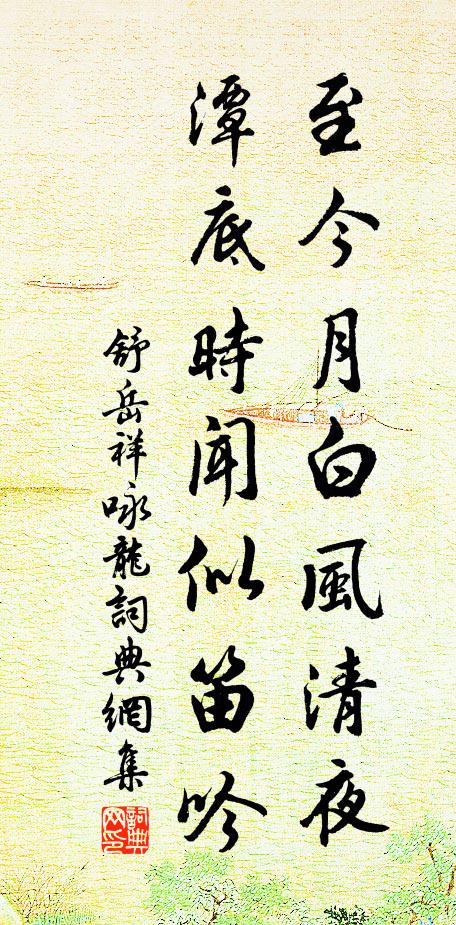 至今月白風清夜
潭底時闻似笛吟
舒岳祥咏龍詞典網集
詞典网印